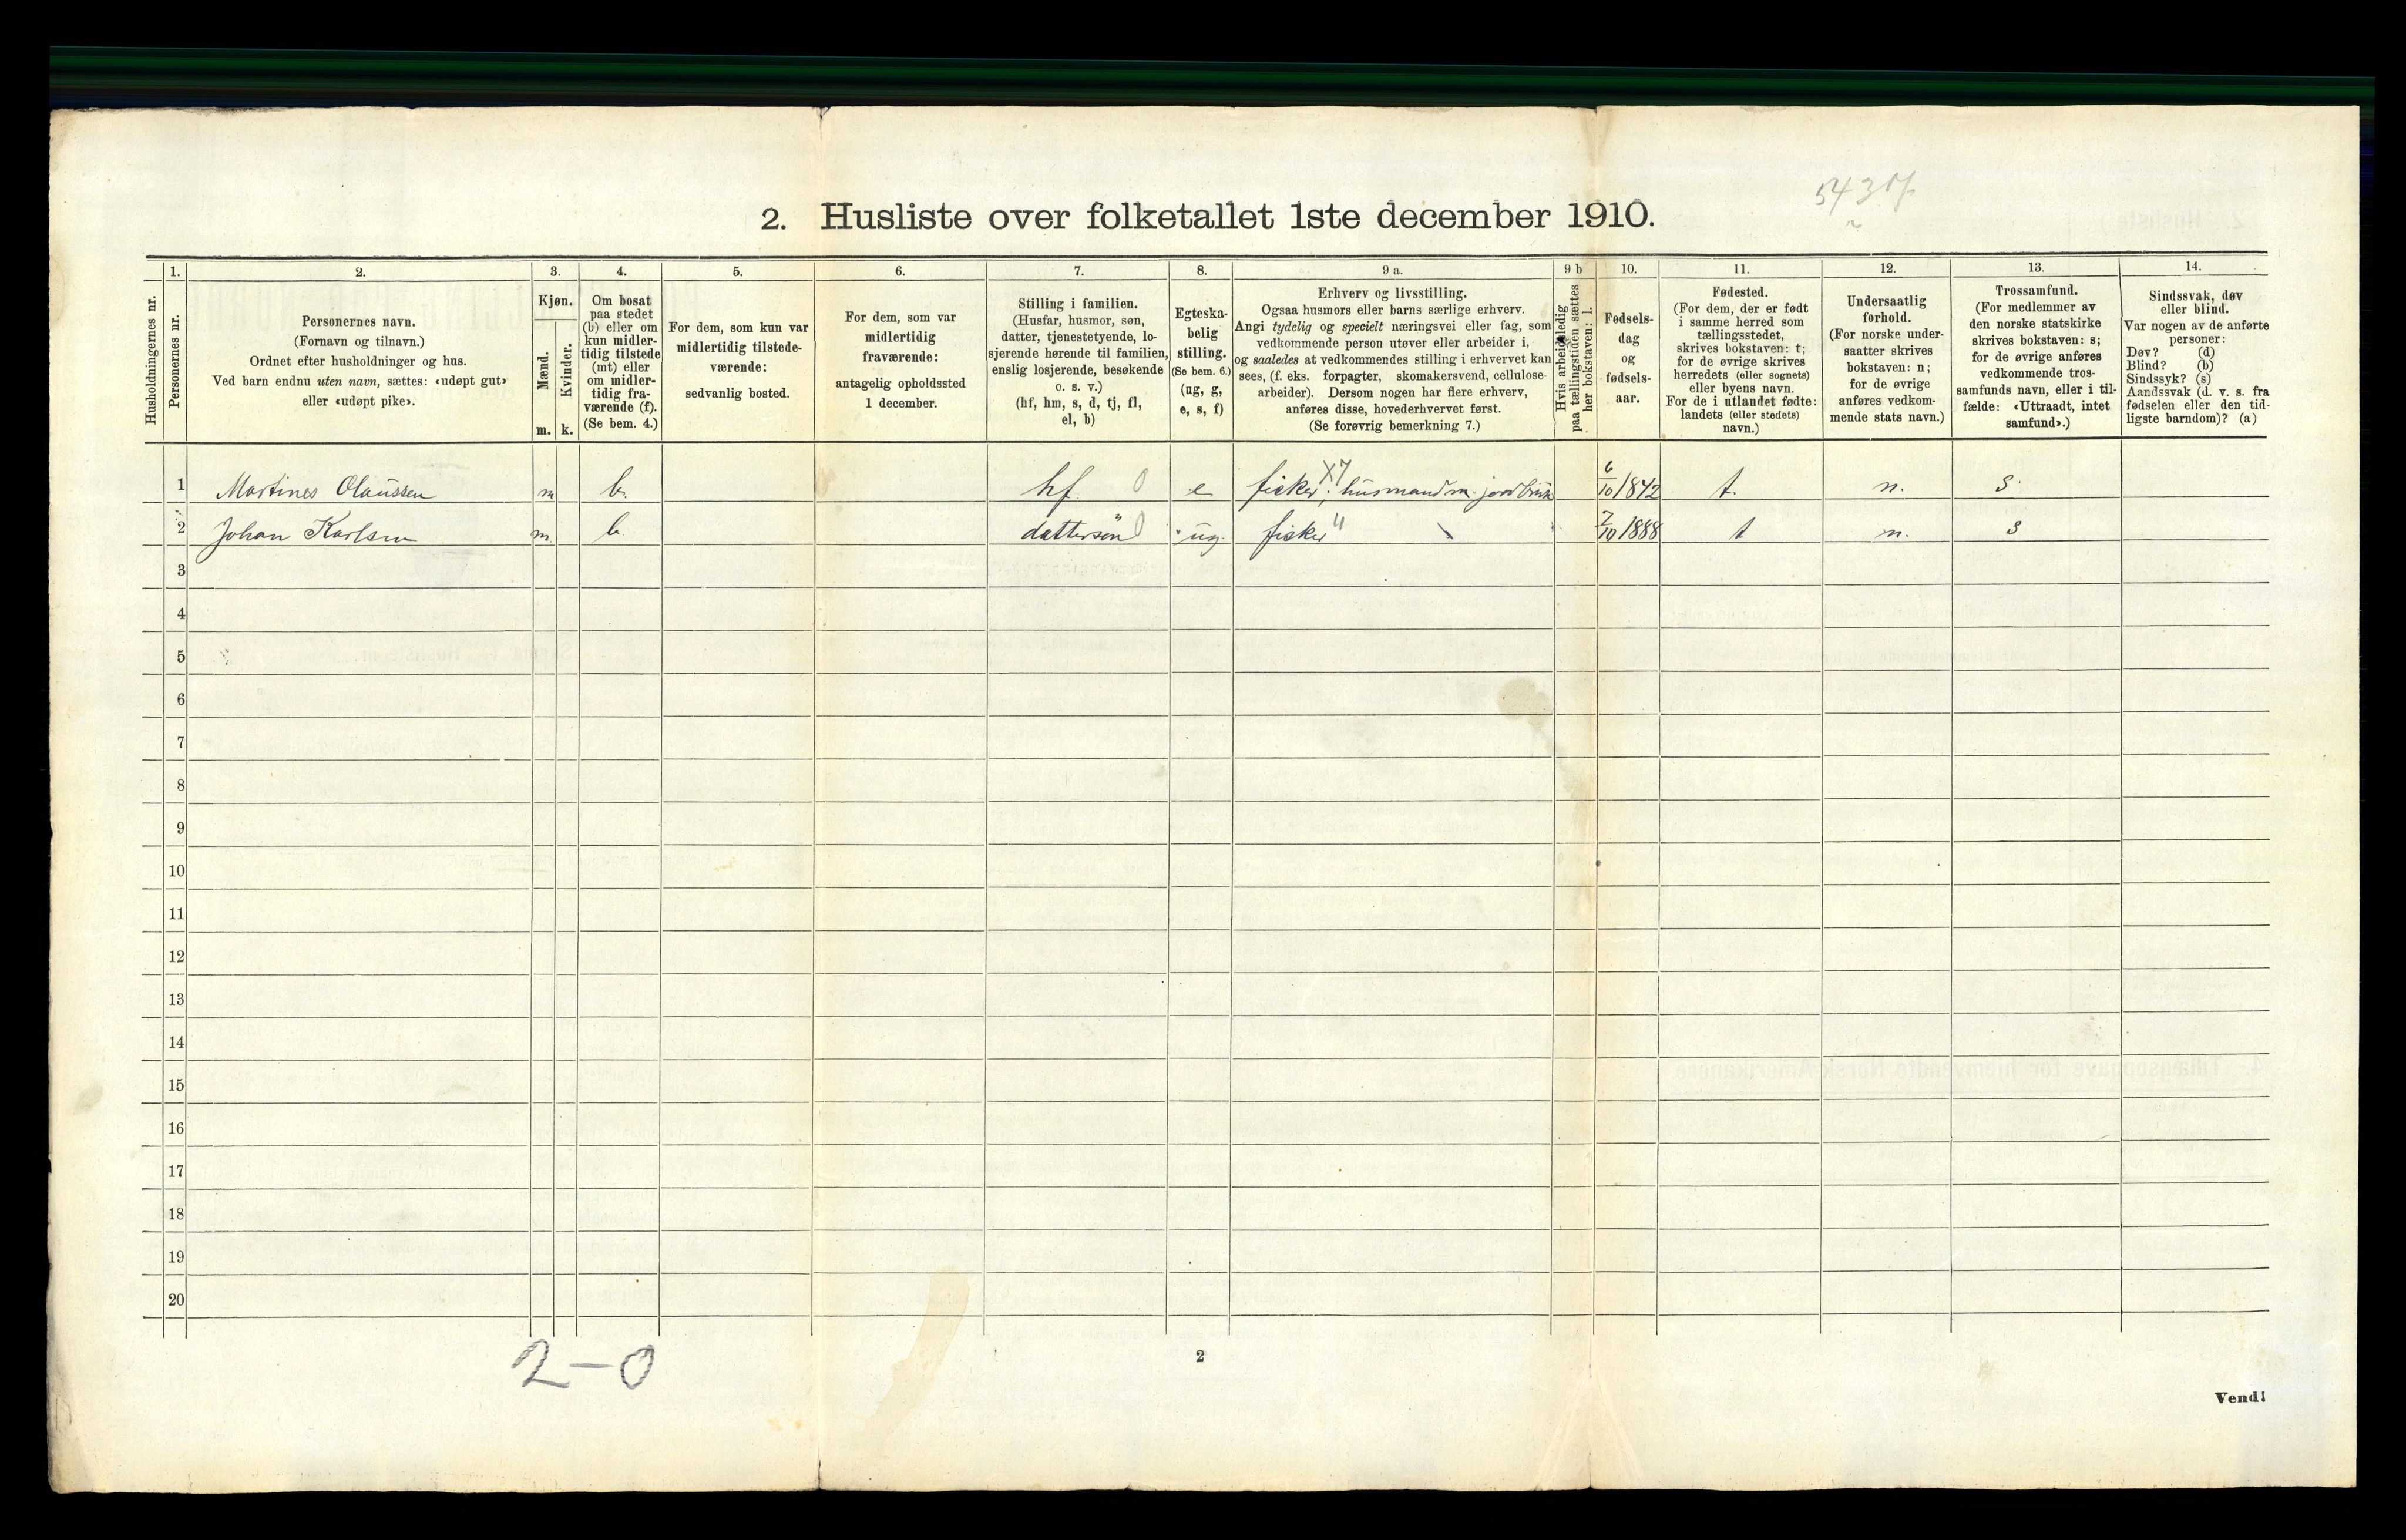 2. Husliste over folketallet 1ste december 1910.
1. 2. 3. 4. 5. 6. 7. 8. 9 a. 9 b 10. 11. 12. 13. 14.
Husholdningernes nr.
Personernes nr.
Personernes navn.
(Fornavn og tilnavn.)
Ordnet efter husholdninger og hus.
Ved barn endnu uten navn, sættes: «udøpt gut»
eller «udøpt pike».
Kjøn.
Mænd.
Kvinder.
m. k.
Om bosat
paa stedet
(b) eller om
kun midler-
tidig tilstede
(mt) eller
om midler-
tidig fra-
værende (f).
(Se bem. 4.)
For dem, som kun var
midlertidig tilstede-
værende:
sedvanlig bosted.
For dem, som var
midlertidig
fraværende:
antagelig opholdssted
1 december.
Stilling i familien.
(Husfar, husmor, søn,
datter, tjenestetyende, lo-
sjerende hørende til familien,
enslig losjerende, besøkende
o. s. v.)
(hf, hm, s, d, tj, fl,
el, b)
Egteska-
belig
stilling.
(Se bem. 6.)
(ug, g,
e, s, f)
Erhverv og livsstilling.
Ogsaa husmors eller barns særlige erhverv.
Angi tydelig og specielt næringsvei eller fag, som
vedkommende person utøver eller arbeider i,
og saaledes at vedkommendes stilling i erhvervet kan
sees, (f. eks. forpagter, skomakersvend, cellulose-
arbeider). Dersom nogen har flere erhverv,
anføres disse, hovederhvervet først.
(Se forøvrig bemerkning 7.)
Hvis arbeidsledig
paa tællingstiden sættes
her bokstaven: l.
Fødsels-
dag
og
fødsels-
aar.
Fødested.
(For dem, der er født
i samme herred som
tællingsstedet,
skrives bokstaven: t;
for de øvrige skrives
herredets (eller sognets)
eller byens navn.
For de i utlandet fødte:
landets (eller stedets)
navn.)
Undersaatlig
forhold.
(For norske under-
saatter skrives
bokstaven: n;
for de øvrige
anføres vedkom-
mende stats navn.)
Trossamfund.
(For medlemmer av
den norske statskirke
skrives bokstaven: s;
for de øvrige anføres
vedkommende tros-
samfunds navn, eller i til-
fælde: «Uttraadt, intet
samfund».)
Sindssvak, døv
eller blind.
Var nogen av de anførte
personer:
Døv? (d)
Blind? (b)
Sindssyk? (s)
Aandssvak (d. v. s. fra
fødselen eller den tid-
ligste barndom)? (a)
1 Martines Olaussen m b. hf. 0 e fisker; X7 husmand m. jordbruk 6/10 1842 t. n. s.
2 Johan Karlsen m. b. dattersøn 0 ug. fisker " 7/10 1888 t n. s
3
4
5
6
7
8
9
10
11
12
13
14
15
16
17
18
19
20
2-0
2
Vend!